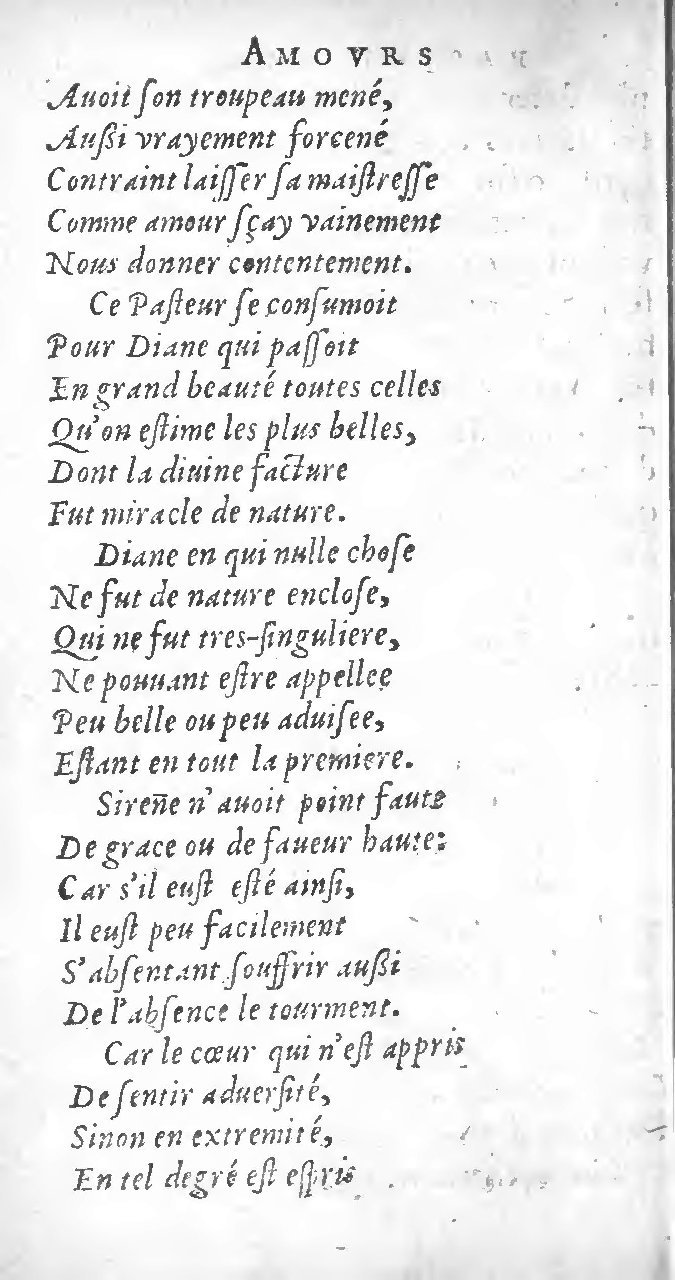 AMOVRS
Auoit ſon troupeau mené,
Auſsi vrayement forcené
Contraint laiſſer ſa maiſtreſſe
Comme amour ſçay vainement
Nous donner contentement.
Ce Paſteur ſe conſumoit
Pour Diane qui paſſoit
En grand beauté toutes celles
Qu'on eſtime les plus belles,
Dont la diuine facture
Fut miracle de nature.
Diane en qui nulle choſe
Ne fut de nature encloſe,
Qui ne fut tres-ſinguliere,
Ne pouuant eſtre appellee
Peu belle ou peu aduiſee,
Eſtant en tout la premiere.
Sireñe n'auoit point faute
De grace ou de faueur haute:
Car s'il euſt eſté ainſi,
Il euſt peu facilement
S'abſentant ſouffrir auſsi
De l'abſence le tourment.
Car le cœur qui n'eſt appris
De ſentir aduerſité,
Sinon en extremité,
En tel degré eſt eſpris